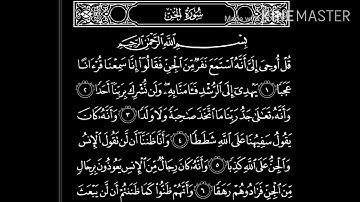 سُورَةُ الجِنِّ
Made with KINEMASTER
بِسْمِ اللَّهِ الرَّحْمَٰنِ الرَّحِيمِ
قُلْ أُوحِيَ إِلَيَّ أَنَّهُ اسْتَمَعَ نَفَرٌ مِّنَ الْجِنِّ فَقَالُوا إِنَّا سَمِعْنَا قُرْءَانًا
عَجَبًا ١ يَهْدِي إِلَى الرُّشْدِ فَـَٔامَنَّا بِهِ وَلَن نُّشْرِكَ بِرَبِّنَا أَحَدًا ٢
وَأَنَّهُ تَعَالَىٰ جَدُّ رَبِّنَا مَا اتَّخَذَ صَاحِبَةً وَلَا وَلَدًا ٣ وَأَنَّهُ كَانَ
يَقُولُ سَفِيهُنَا عَلَى اللَّهِ شَطَطًا ٤ وَأَنَّا ظَنَنَّا أَن لَّن تَقُولَ الْإِنسُ
وَالْجِنُّ عَلَى اللَّهِ كَذِبًا ٥ وَأَنَّهُ كَانَ رِجَالٌ مِّنَ الْإِنسِ يَعُوذُونَ بِرِجَالٍ
مِّنَ الْجِنِّ فَزَادُوهُمْ رَهَقًا ٦ وَأَنَّهُمْ ظَنُّوا كَمَا ظَنَنتُمْ أَن لَّن يَبْعَثَ